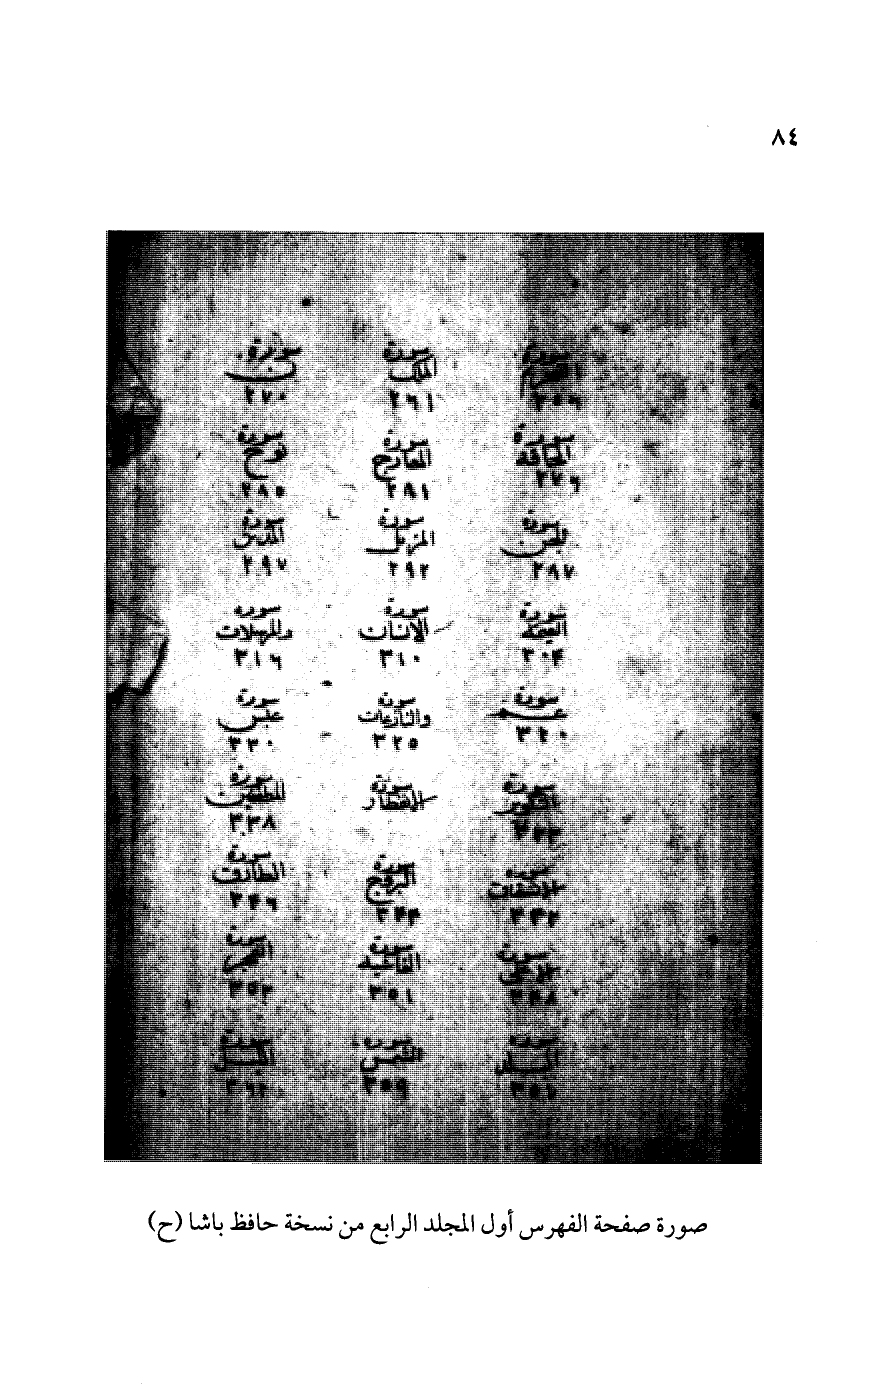 ٨٤
سورة التحريم ٢٥٩
سورة الملك ٢٦١
سورة ن ٢٧٠
سورة الحاقة ٢٧٦
سورة المعارج ٢٨١
سورة نوح ٢٨٥
سورة الجن ٢٨٧
سورة المزمل ٢٩٢
سورة المدثر ٢٩٧
سورة القيمة ٣٠٣
سورة الإنسان ٣١٠
سورة والمرسلات ٣١٦
سورة عم ٣٢٠
سورة والنازعات ٣٢٥
سورة عبس ٣٣٠
سورة التكوير
سورة الانفطار
سورة المطففين ٣٣٨
سورة الانشقاق ٣٤٢
سورة البروج ٣٤٤
سورة الطارق ٣٤٦
سورة الأعلى ٣٤٨
سورة الغاشية ٣٥١
سورة الفجر ٣٥٣
سورة البلد
سورة الشمس ٣٥٩
سورة الليل
صورة صفحة الفهرس أول المجلد الرابع من نسخة حافظ باشا (ح)